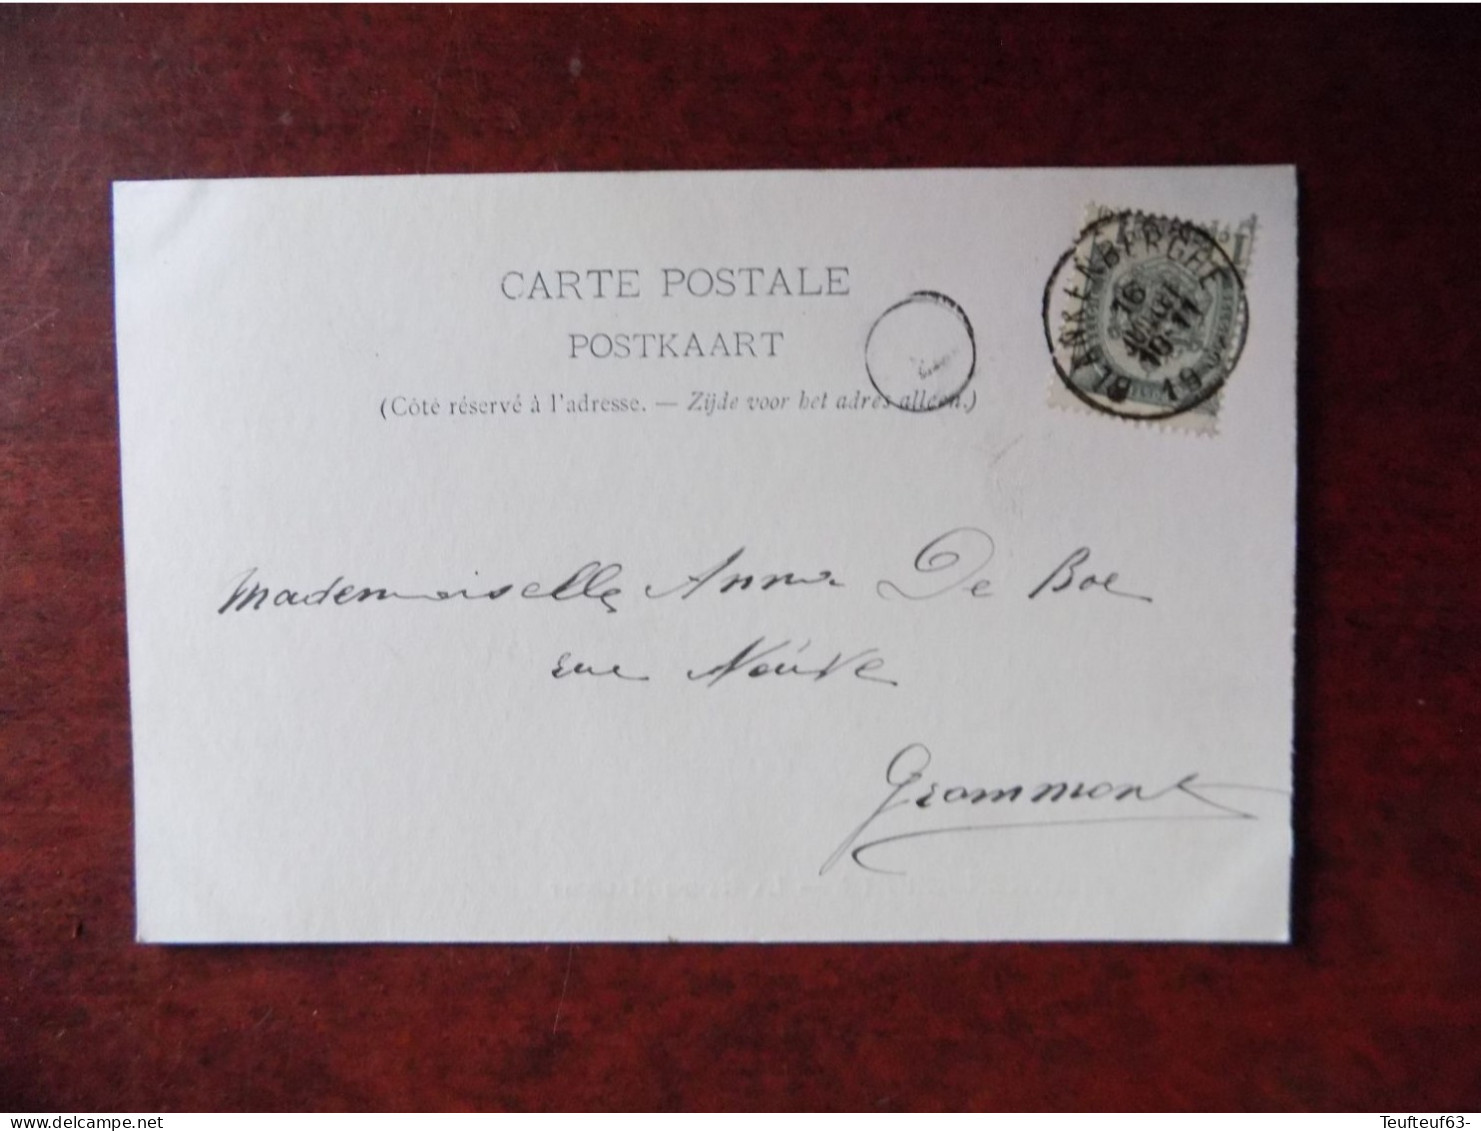 CARTE POSTALE
POSTKAART
(Côté réservé à l'adresse. — Zijde voor het adres alleen.)
BLANKENBERGHE
16
JUILLET
10-11
19
Mademoiselle Anna De Boe
rue Neuve
Grammont
Teufteuf63-